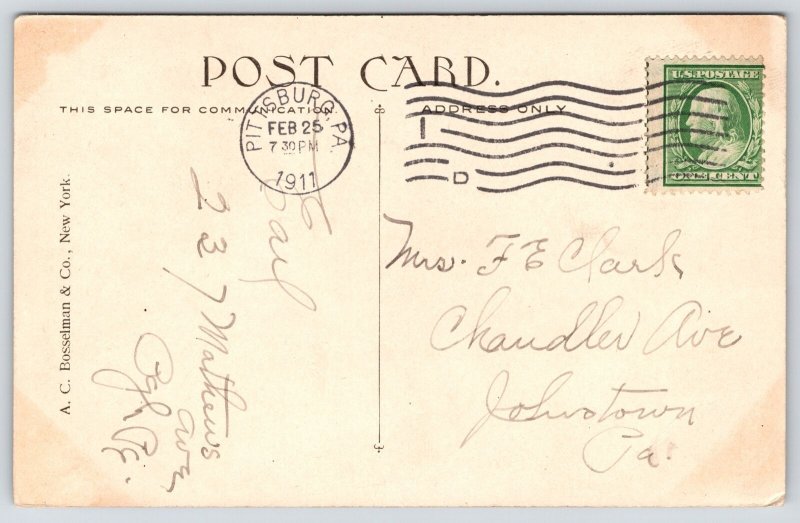 POST CARD.
THIS SPACE FOR COMMUNICATION
ADDRESS ONLY
PITTSBURG, PA.
FEB 25
7 30 PM
1911
D
U.S. POSTAGE
ONE CENT
A. C. Bosselman & Co., New York.
227 Mathews
Ave
Pa
Mrs. F E Clark
Chandler Ave
Johnstown
Pa.